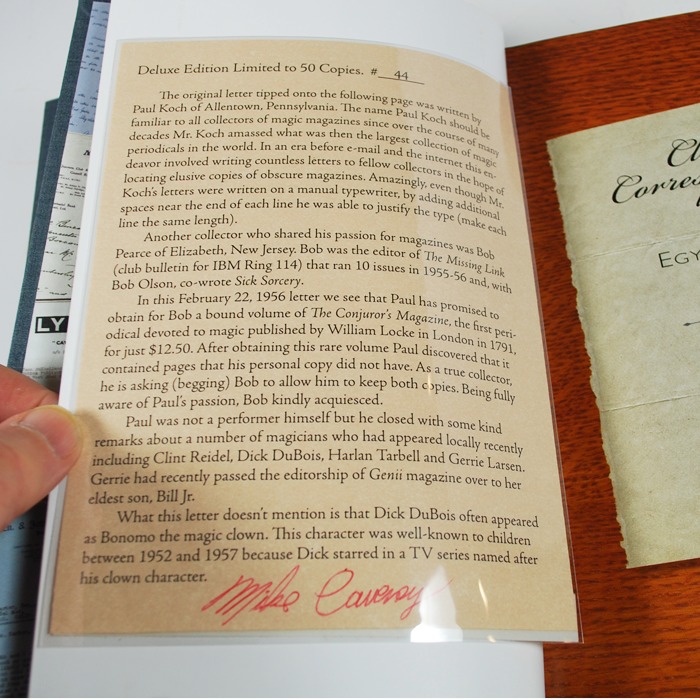 Deluxe Edition Limited to 50 Copies. # 44
The original letter tipped onto the following page was written by
Paul Koch of Allentown, Pennsylvania. The name Paul Koch should be
familiar to all collectors of magic magazines since over the course of many
decades Mr. Koch amassed what was then the largest collection of magic
periodicals in the world. In an era before e-mail and the internet this en-
deavor involved writing countless letters to fellow collectors in the hope of
locating elusive copies of obscure magazines. Amazingly, even though Mr.
Koch's letters were written on a manual typewriter, by adding additional
spaces near the end of each line he was able to justify the type (make each
line the same length).
Another collector who shared his passion for magazines was Bob
Pearce of Elizabeth, New Jersey. Bob was the editor of The Missing Link
(club bulletin for IBM Ring 114) that ran 10 issues in 1955-56 and, with
Bob Olson, co-wrote Sick Sorcery.
In this February 22, 1956 letter we see that Paul has promised to
obtain for Bob a bound volume of The Conjuror's Magazine, the first peri-
odical devoted to magic published by William Locke in London in 1791,
for just $12.50. After obtaining this rare volume Paul discovered that it
contained pages that his personal copy did not have. As a true collector,
he is asking (begging) Bob to allow him to keep both copies. Being fully
aware of Paul's passion, Bob kindly acquiesced.
Paul was not a performer himself but he closed with some kind
remarks about a number of magicians who had appeared locally recently
including Clint Reidel, Dick DuBois, Harlan Tarbell and Gerrie Larsen.
Gerrie had recently passed the editorship of Genii magazine over to her
eldest son, Bill Jr.
What this letter doesn't mention is that Dick DuBois often appeared
as Bonomo the magic clown. This character was well-known to children
between 1952 and 1957 because Dick starred in a TV series named after
his clown character.
Mike Caveney
LY
Corres
EGY